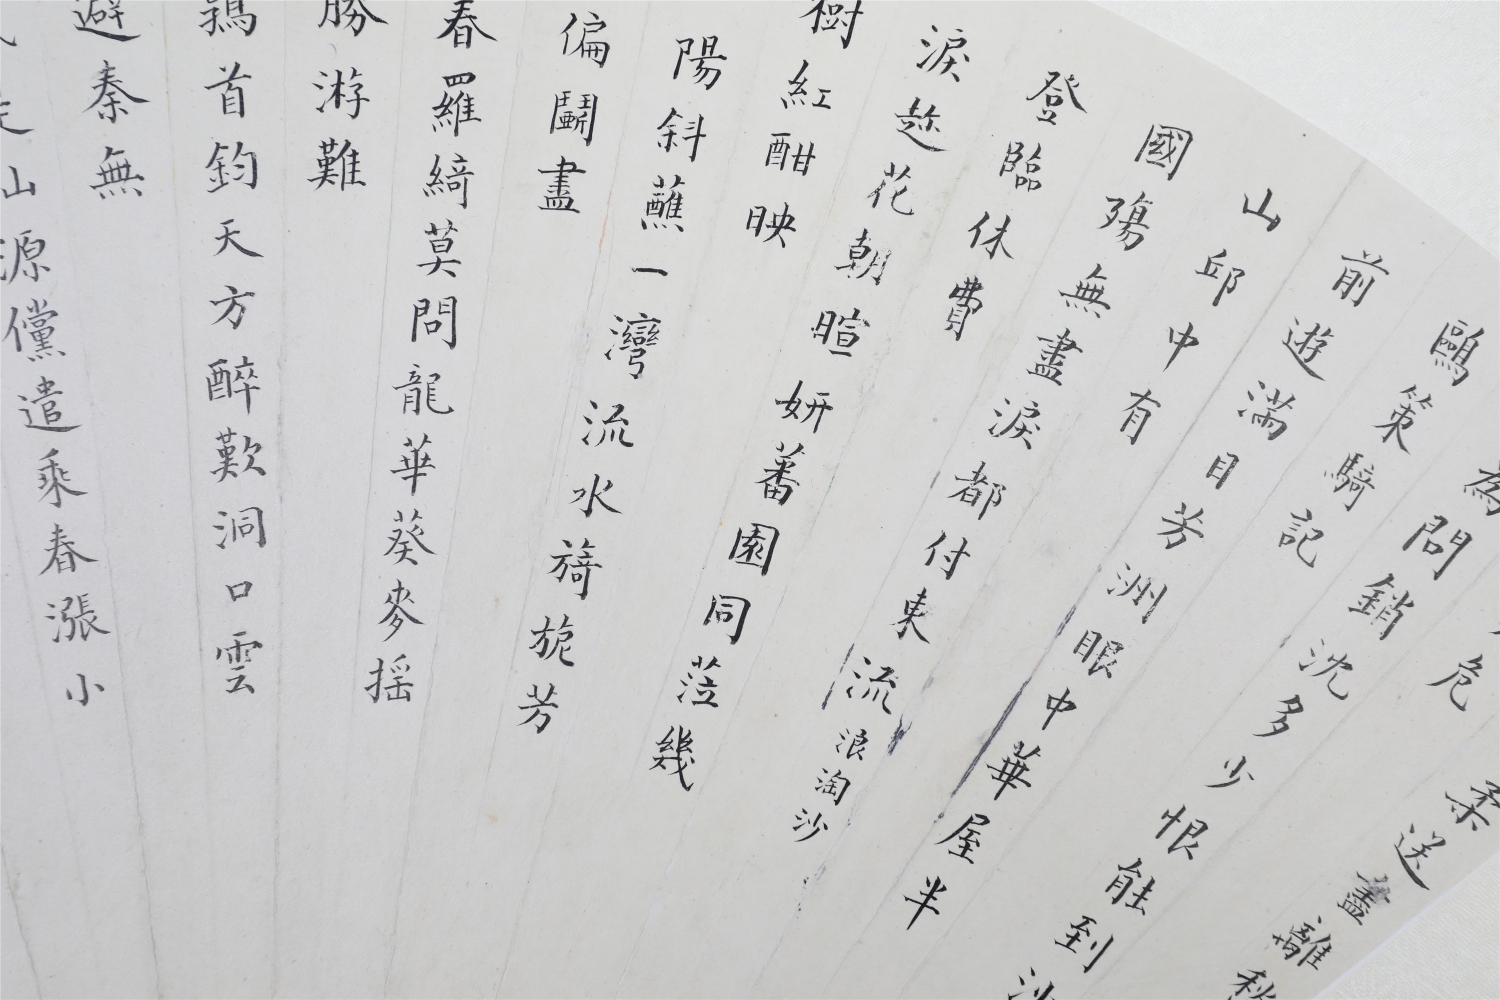 柔送盡離愁
危
為問銷沈多少恨能到沙
鷗策騎記
前遊滿目芳洲眼中華屋半
山邱中有
國殤無盡淚都付東流浪淘沙
登臨休費
淚趂花朝暄妍蕃園同蒞幾
樹紅酣映
陽斜蘸一灣流水旖旎芳
偏鬭盡
春羅綺莫問龍華葵麥搖
勝游難
鶉首鈞天方醉歎洞口雲
避秦無
山源儻遣乘春漲小